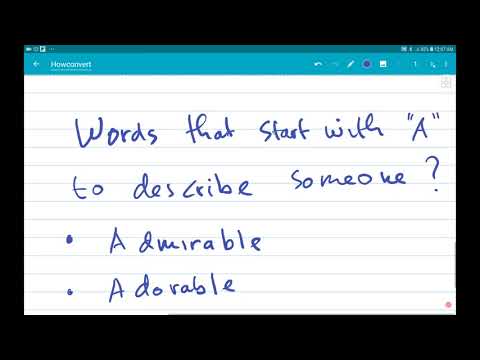 Howconvert
Words that start with "A"
to describe someone?
• Admirable
• Adorable